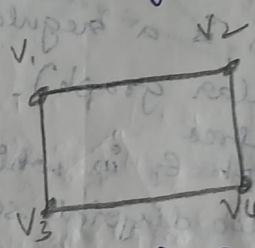 V1 V2
V3 V4